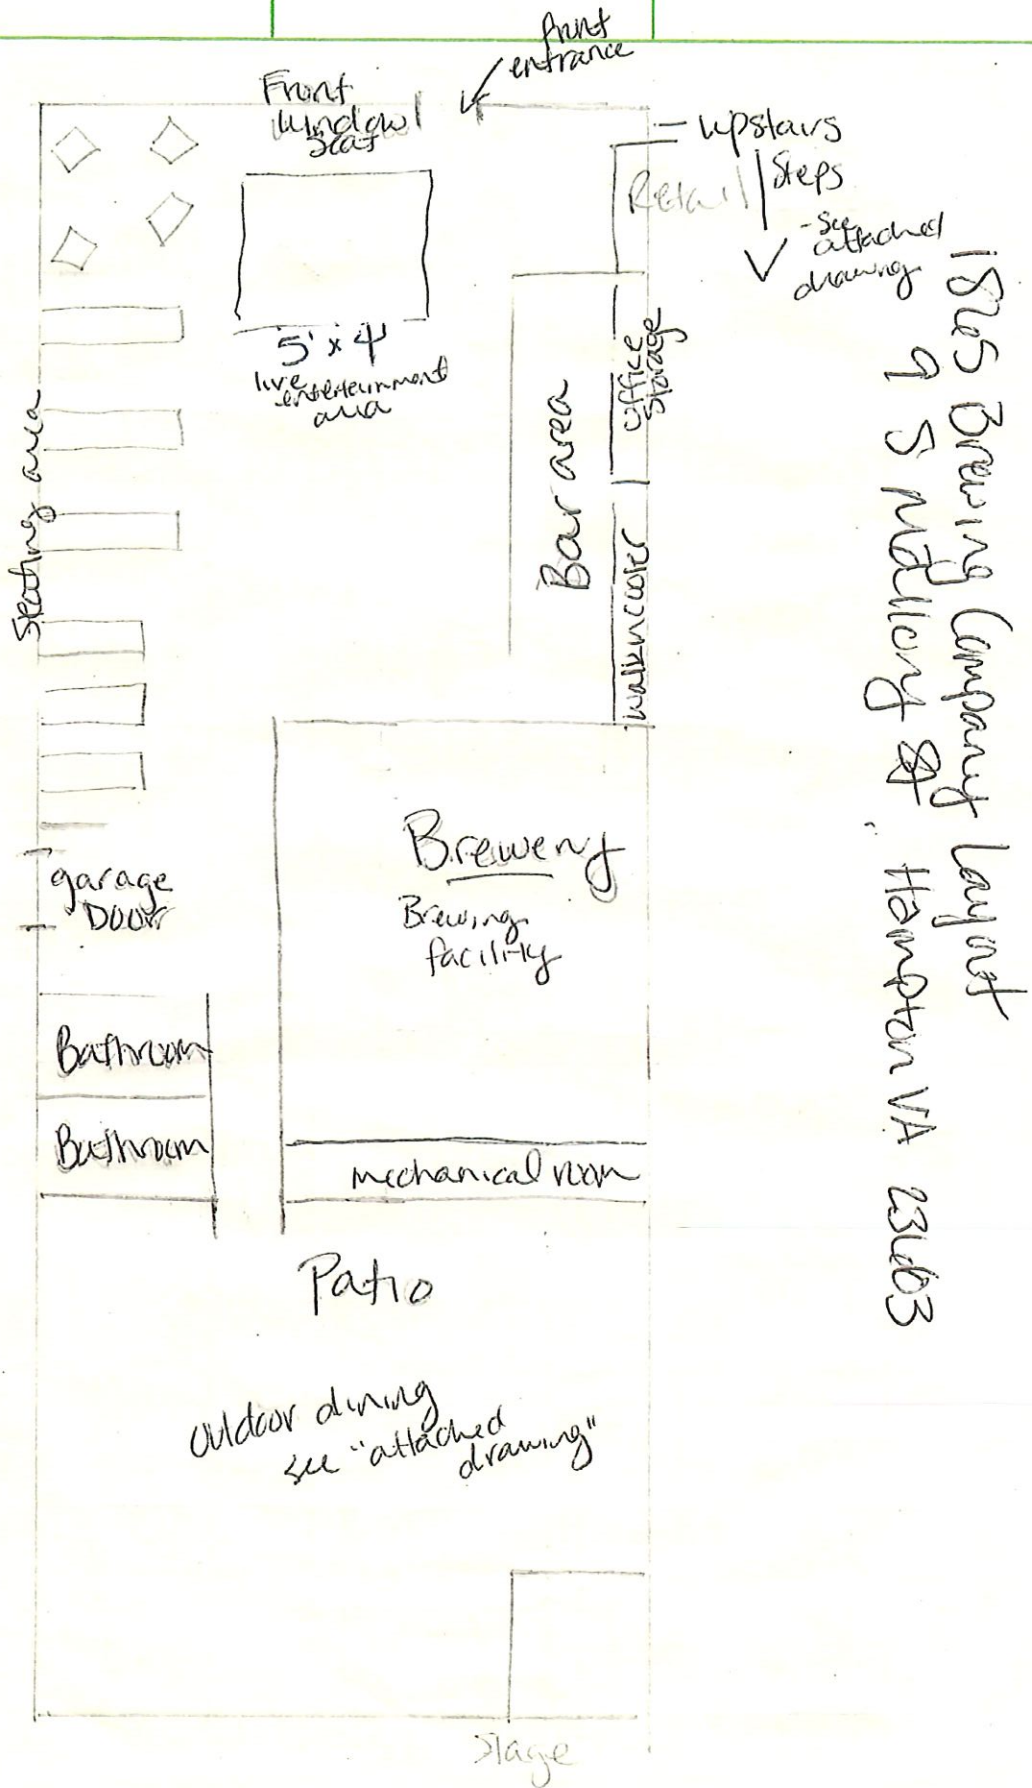 front
entrance
Front
window
seat
upstairs
Steps
- see
attached
drawing
Retail
5' x 4'
live
entertainment
area
Seating area
Office
Storage
Bar area
walk in cooler
1865 Brewing Company Layout
9 S Mallory St Hampton VA 23663
Brewery
Brewing
facility
garage
Door
Bathroom
Bathroom
mechanical room
Patio
outdoor dining
see "attached
drawing"
Stage